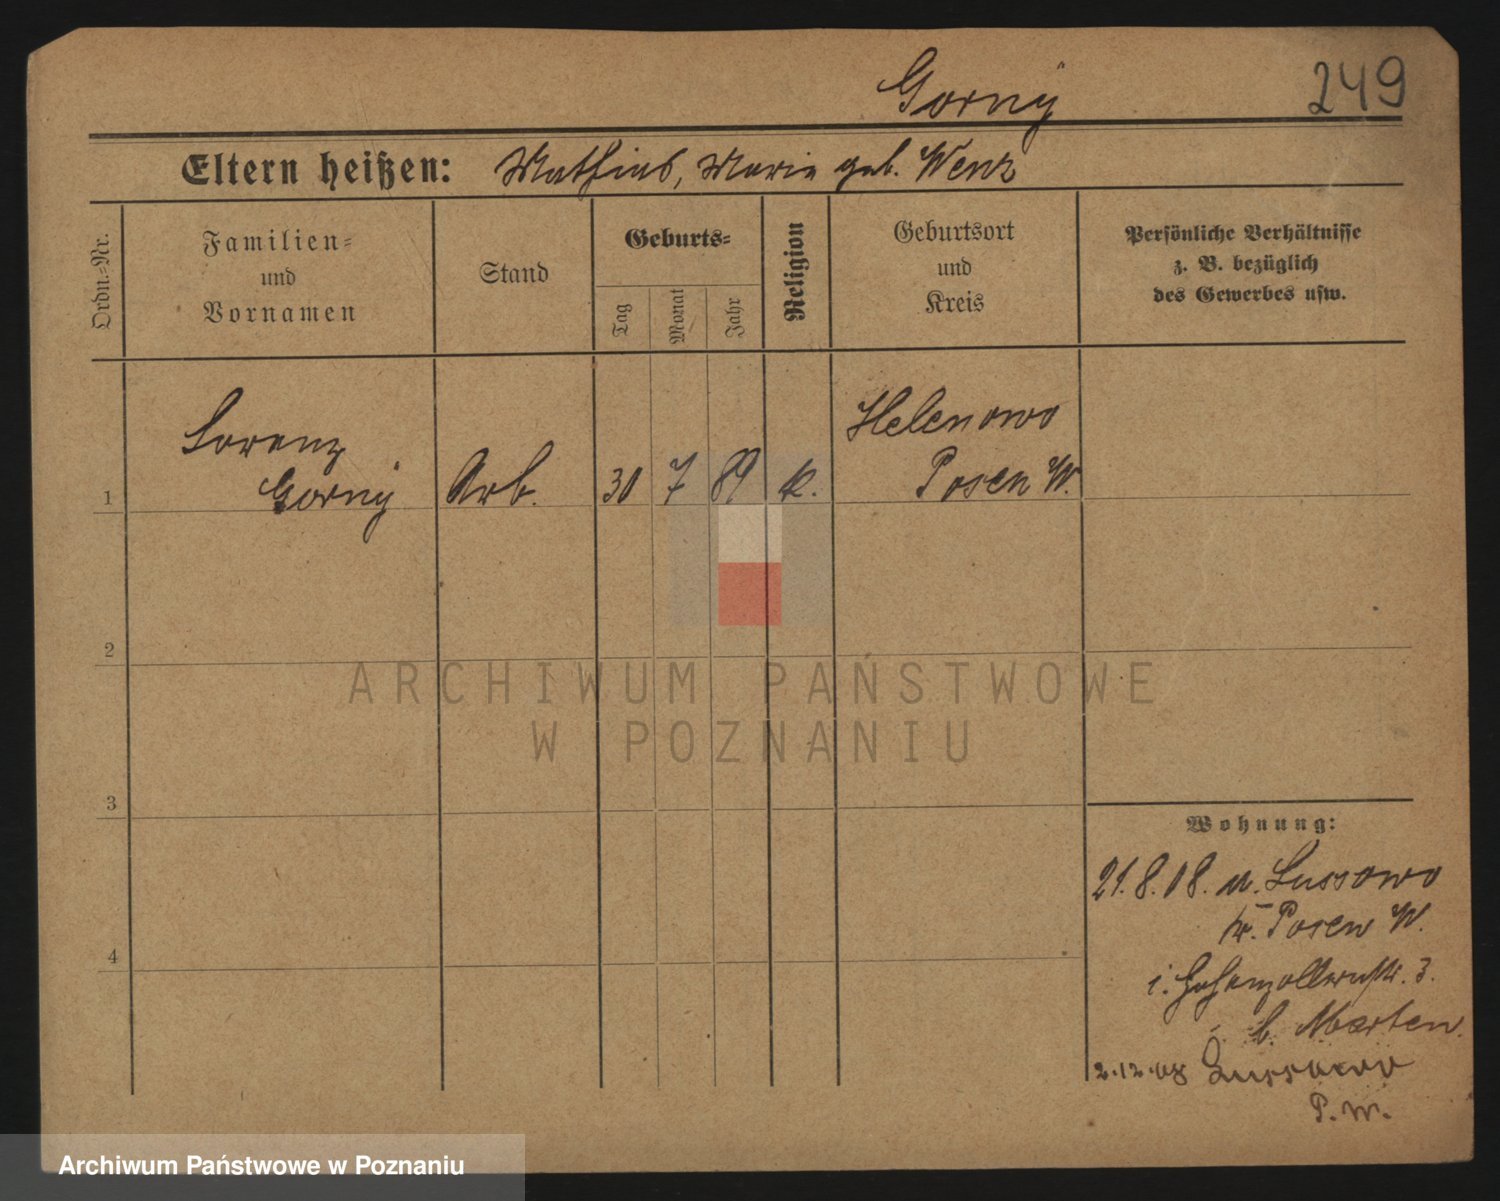 Gorny
249
Eltern heißen: Mathias, Marie geb. Wenz
Ordn.-Nr.
Familien-
und
Vornamen
Stand
Geburts-
Tag
Monat
Jahr
Religion
Geburtsort
und
Kreis
Persönliche Verhältnisse
z. B. bezüglich
des Gewerbes usw.
Lorenz
Gorny
1
Arb.
30
7
89
k.
Helenowo
Posen W.
2
3
4
ARCHIWUM PAŃSTWOWE
W POZNANIU
Wohnung:
21.8.08. v. Lussowo
Kr. Posen W.
i. Hohenzollernstr. 3.
b. Marten.
2.12.08 Lussowo
P. W.
Archiwum Państwowe w Poznaniu